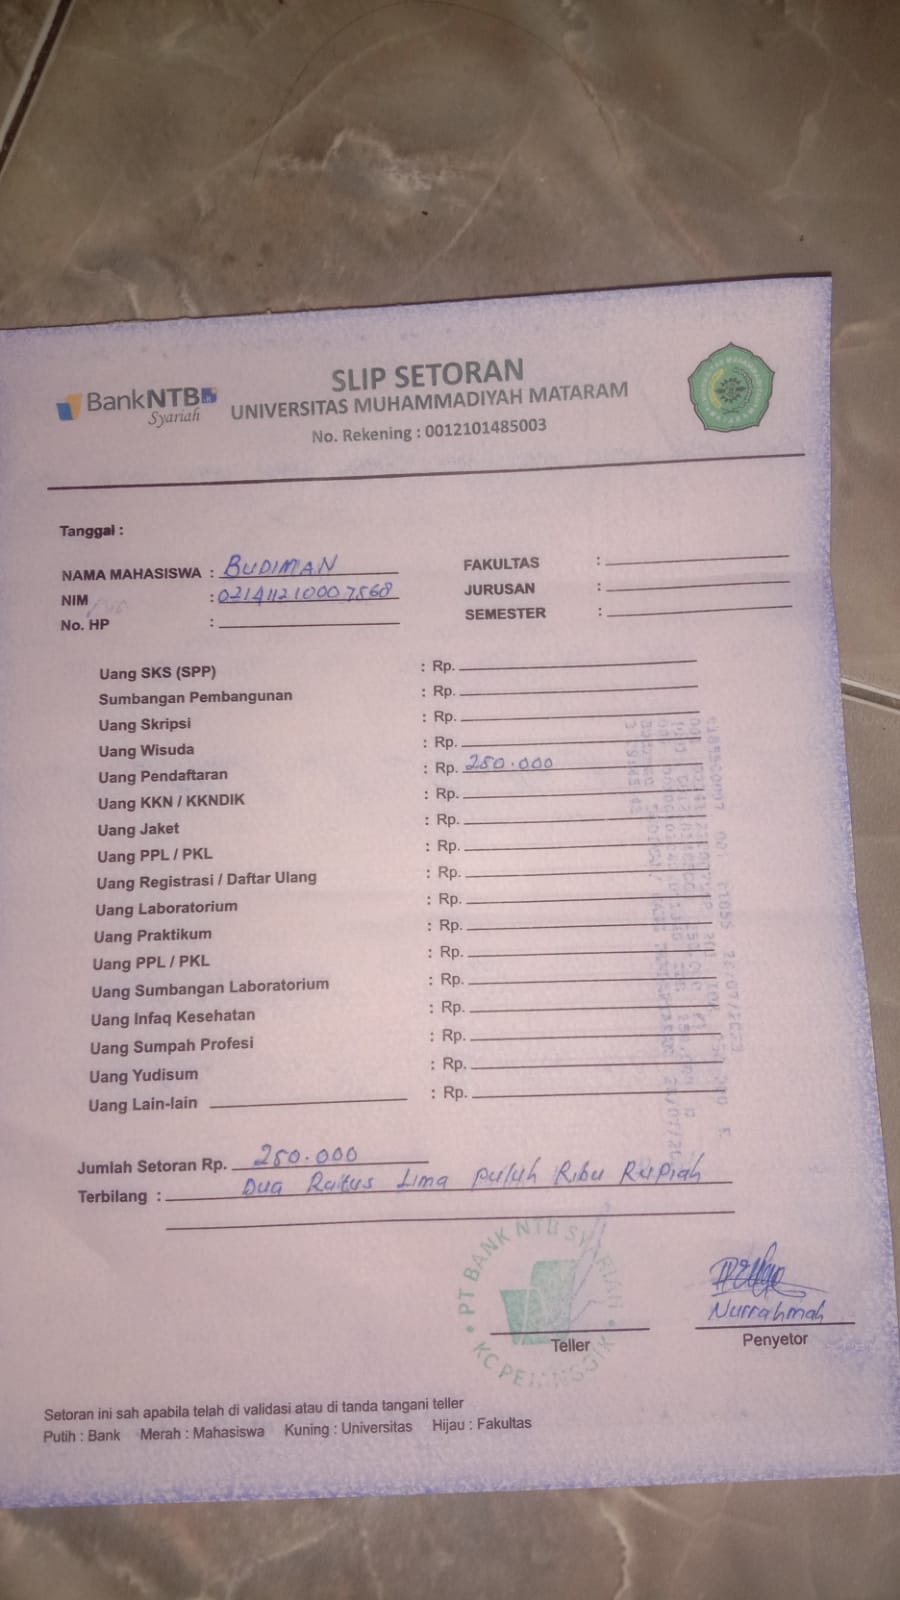 BankNTB
Syariah
SLIP SETORAN
UNIVERSITAS MUHAMMADIYAH MATARAM
No. Rekening : 0012101485003
Tanggal :
NAMA MAHASISWA : BUDIMAN
NIM : 021411210007568
No. HP :
FAKULTAS :
JURUSAN :
SEMESTER :
Uang SKS (SPP) : Rp.
Sumbangan Pembangunan : Rp.
Uang Skripsi : Rp.
Uang Wisuda : Rp.
Uang Pendaftaran : Rp. 250.000
Uang KKN / KKNDIK : Rp.
Uang Jaket : Rp.
Uang PPL / PKL : Rp.
Uang Registrasi / Daftar Ulang : Rp.
Uang Laboratorium : Rp.
Uang Praktikum : Rp.
Uang PPL / PKL : Rp.
Uang Sumbangan Laboratorium : Rp.
Uang Infaq Kesehatan : Rp.
Uang Sumpah Profesi : Rp.
Uang Yudisum : Rp.
Uang Lain-lain : Rp.
Jumlah Setoran Rp. 250.000
Terbilang : Dua Ratus Lima puluh Ribu Rupiah
PT BANK NTB SYARIAH
KC PEJANGGIK
Nurrahmah
Teller
Penyetor
Setoran ini sah apabila telah di validasi atau di tanda tangani teller
Putih : Bank Merah : Mahasiswa Kuning : Universitas Hijau : Fakultas